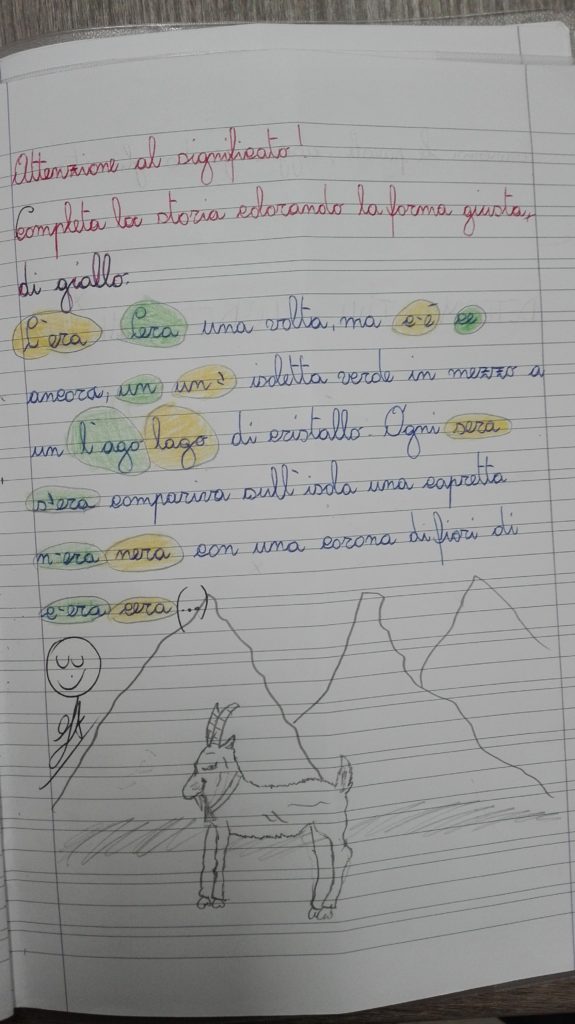 Attenzione al significato!
Completa la storia colorando la forma giusta,
di giallo.
C'era Cera una volta, ma c'è ce
ancora, un un' isoletta verde in mezzo a
un l'ago lago di cristallo. Ogni sera
s'era compariva sull'isola una capretta
n'era nera con una corona di fiori di
c'era cera (...)